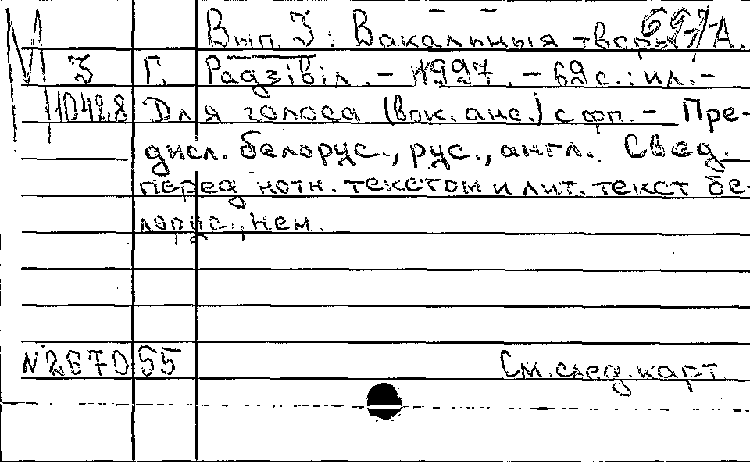 Вып. 3 : Вакальныя творы А.
М 3 Г. Радзівіл. – 1997. – 62 с. : ил. –
10428 Для голоса (вок. анс.) с фп. – Пре-
дисл. белорус., рус., англ. Свед.
перед нотн. текстом и лит. текст бе-
лорус., нем.
N267055 См. след. карт.